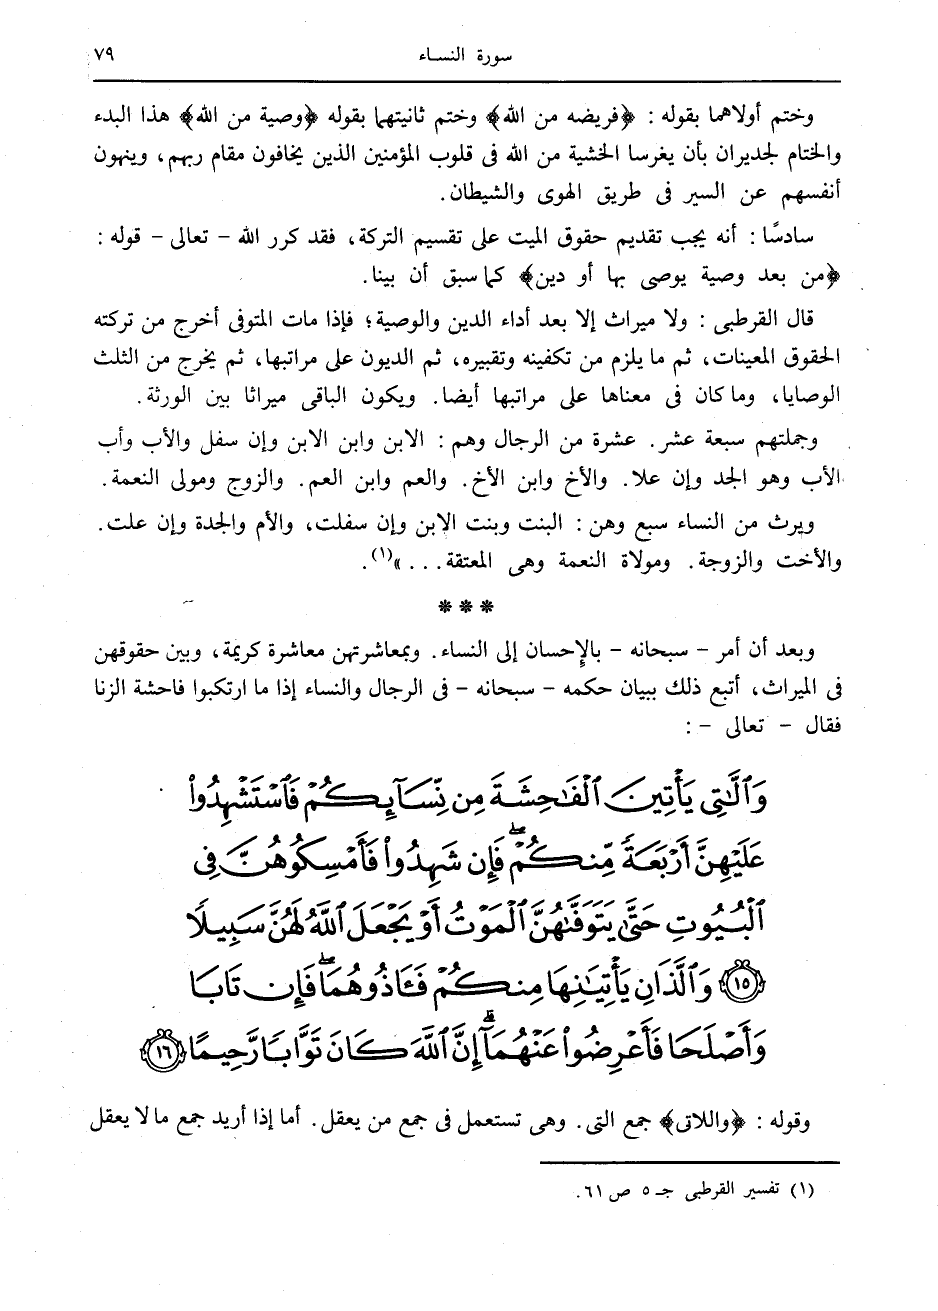 سورة النساء ٧٩
وختم أولاهما بقوله : ﴿فريضه من الله﴾ وختم ثانيتهما بقوله ﴿وصية من الله﴾ هذا البدء
والختام لجديران بأن يغرسا الخشية من الله فى قلوب المؤمنين الذين يخافون مقام ربهم، وينهون
أنفسهم عن السير فى طريق الهوى والشيطان.
سادسًا : أنه يجب تقديم حقوق الميت على تقسيم التركة، فقد كرر الله - تعالى - قوله :
﴿من بعد وصية يوصى بها أو دين﴾ كما سبق أن بينا.
قال القرطبى : ولا ميراث إلا بعد أداء الدين والوصية؛ فإذا مات المتوفى أخرج من تركته
الحقوق المعينات، ثم ما يلزم من تكفينه وتقبيره، ثم الديون على مراتبها، ثم يخرج من الثلث
الوصايا، وما كان فى معناها على مراتبها أيضا. ويكون الباقى ميراثا بين الورثة.
وجملتهم سبعة عشر. عشرة من الرجال وهم : الابن وابن الابن وإن سفل والأب وأب
الأب وهو الجد وإن علا. والأخ وابن الأخ. والعم وابن العم. والزوج ومولى النعمة.
ويرث من النساء سبع وهن : البنت وبنت الابن وإن سفلت، والأم والجدة وإن علت.
والأخت والزوجة. ومولاة النعمة وهى المعتقة...»(١).
***
وبعد أن أمر - سبحانه - بالإحسان إلى النساء. وبمعاشرتهن معاشرة كريمة، وبين حقوقهن
فى الميراث، أتبع ذلك ببيان حكمه - سبحانه - فى الرجال والنساء إذا ما ارتكبوا فاحشة الزنا
فقال - تعالى - :
وَٱلَّٰتِى يَأْتِينَ ٱلْفَٰحِشَةَ مِن نِّسَآئِكُمْ فَٱسْتَشْهِدُوا۟
عَلَيْهِنَّ أَرْبَعَةً مِّنكُمْ ۖ فَإِن شَهِدُوا۟ فَأَمْسِكُوهُنَّ فِى
ٱلْبُيُوتِ حَتَّىٰ يَتَوَفَّىٰهُنَّ ٱلْمَوْتُ أَوْ يَجْعَلَ ٱللَّهُ لَهُنَّ سَبِيلًا
﴿١٥﴾ وَٱلَّذَانِ يَأْتِيَٰنِهَا مِنكُمْ فَـَٔاذُوهُمَا ۖ فَإِن تَابَا
وَأَصْلَحَا فَأَعْرِضُوا۟ عَنْهُمَآ ۗ إِنَّ ٱللَّهَ كَانَ تَوَّابًا رَّحِيمًا ﴿١٦﴾
وقوله : ﴿واللاتى﴾ جمع التى. وهى تستعمل فى جمع من يعقل. أما إذا أريد جمع ما لا يعقل
(١) تفسير القرطبى جـ ٥ ص ٦١.